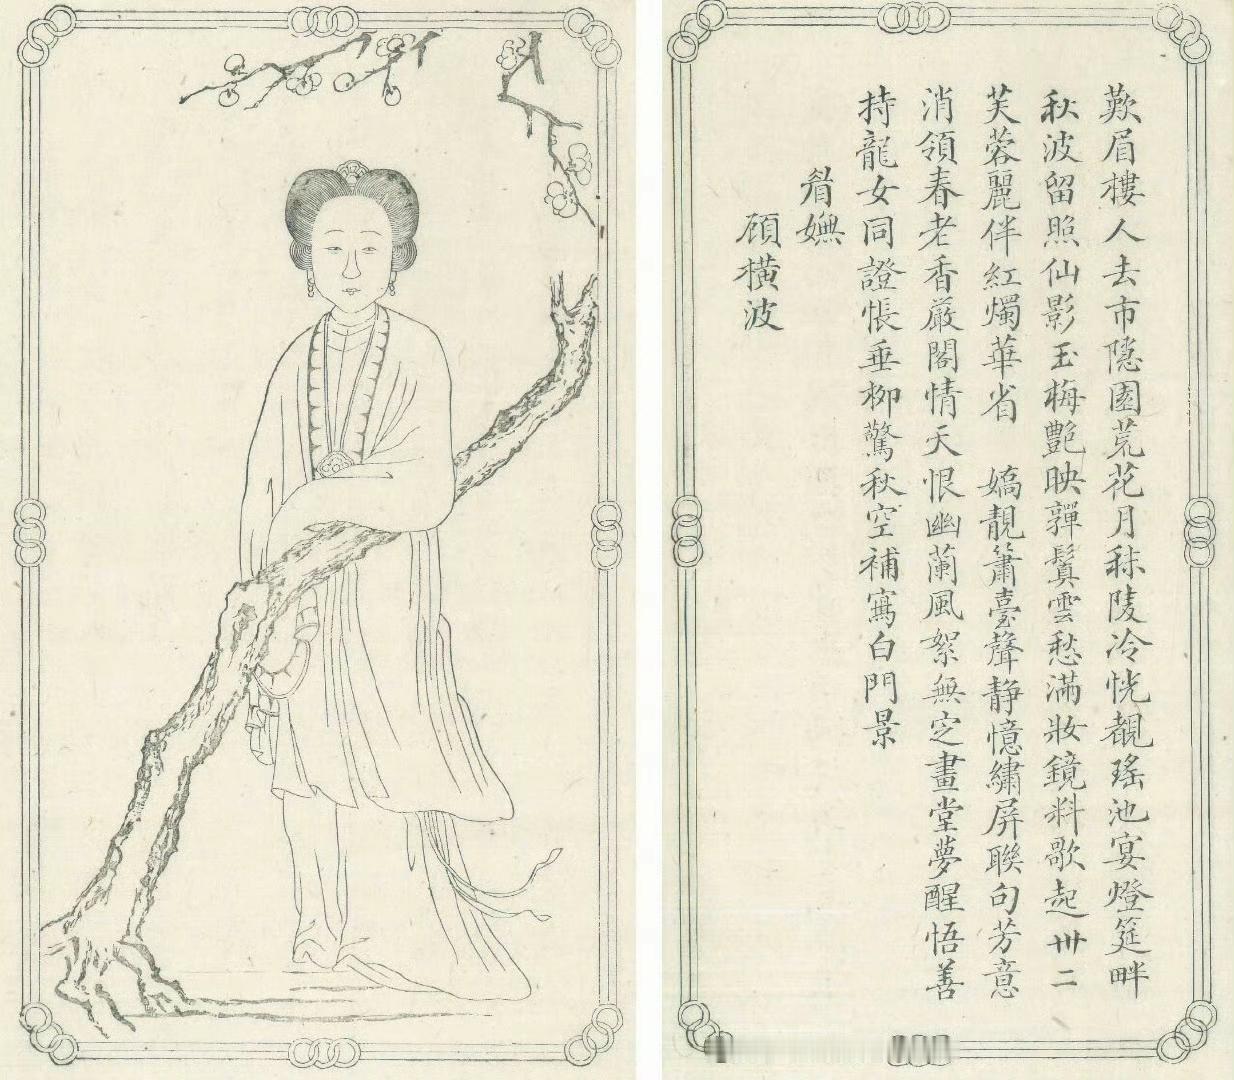 歎眉樓人去市隱園荒花月秣陵冷恍覩瑤池宴燈筵畔
秋波留照仙影玉梅艷映嚲鬟雲愁滿妝鏡料歌起卅二
芙蓉麗伴紅燭華省　嬌靚簫臺聲靜憶繡屏聯句芳意
消領春老香嚴閣情天恨幽蘭風絮無定畫堂夢醒悟善
持龍女同證悵垂柳驚秋空補寫白門景
眉嫵
顧橫波